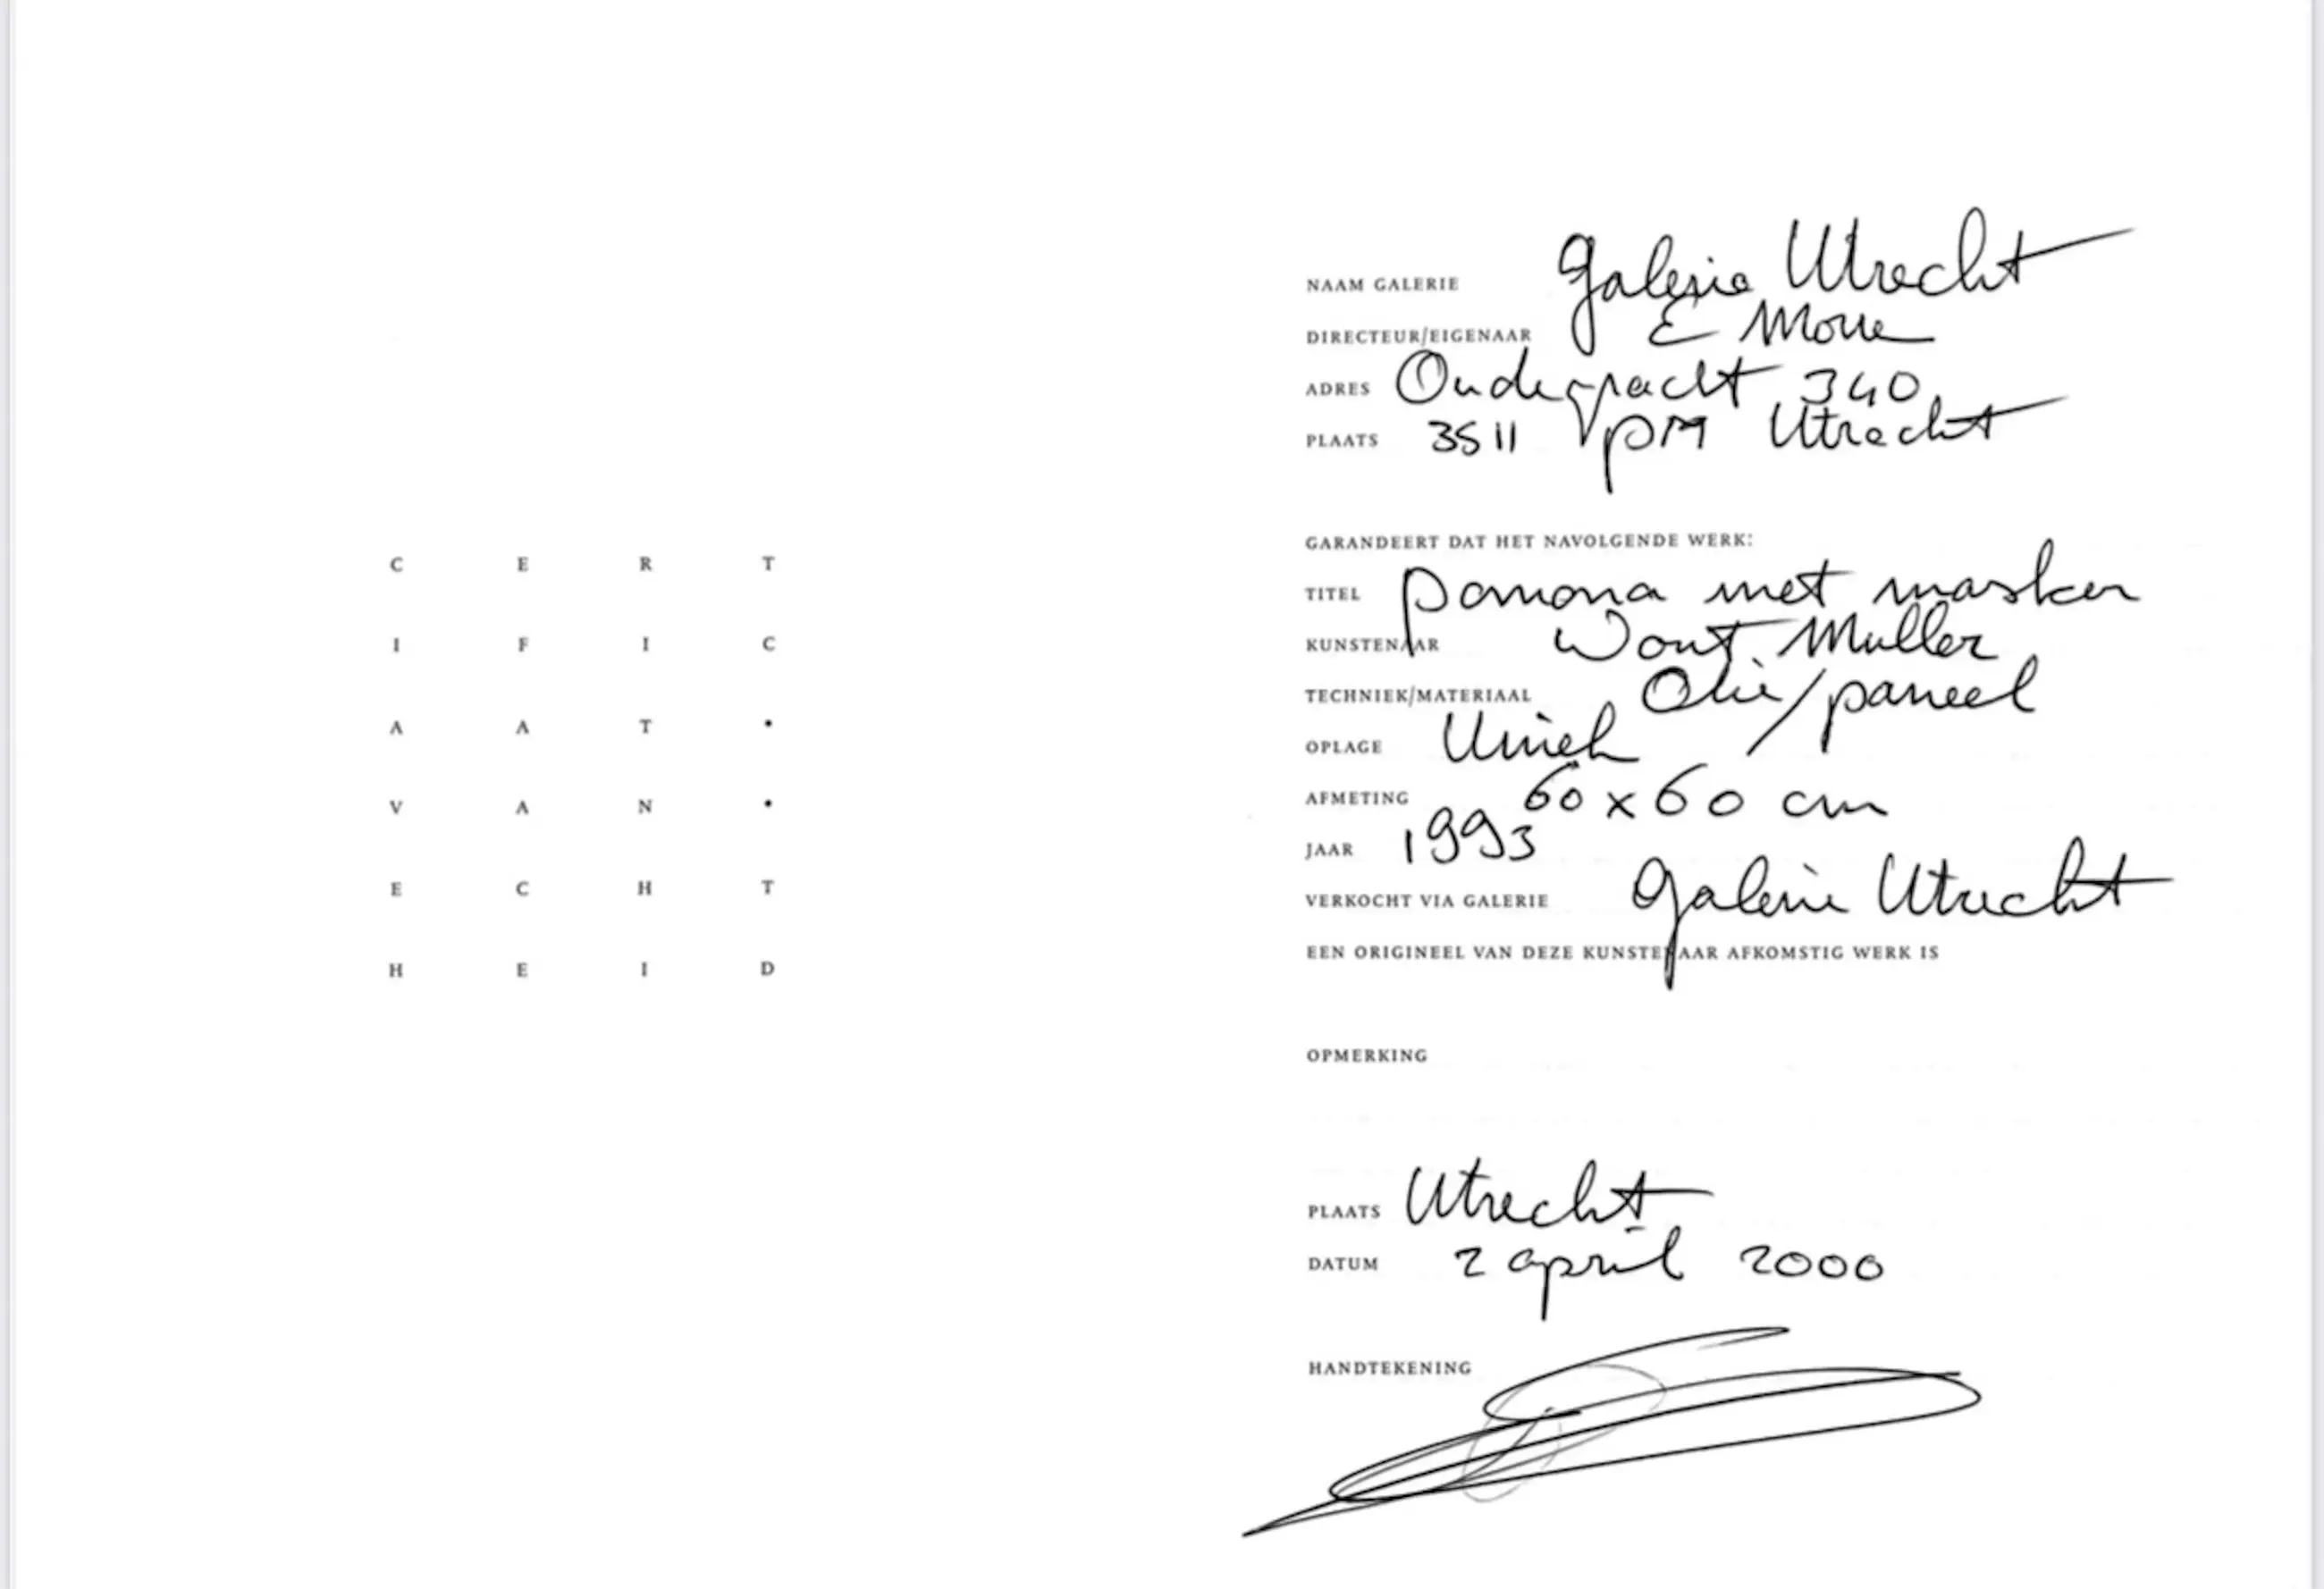 C E R T
I F I C
A A T •
V A N •
E C H T
H E I D
NAAM GALERIE Galerie Utrecht
DIRECTEUR/EIGENAAR E
ADRES Oudegracht 340
PLAATS 3511 PM Utrecht
GARANDEERT DAT HET NAVOLGENDE WERK:
TITEL Pomona met masker
KUNSTENAAR Wout Muller
TECHNIEK/MATERIAAL Olie/paneel
OPLAGE Uniek
AFMETING 60 x 60 cm
JAAR 1993
VERKOCHT VIA GALERIE Galerie Utrecht
EEN ORIGINEEL VAN DEZE KUNSTENAAR AFKOMSTIG WERK IS
OPMERKING
PLAATS Utrecht
DATUM 2 april 2000
HANDTEKENING